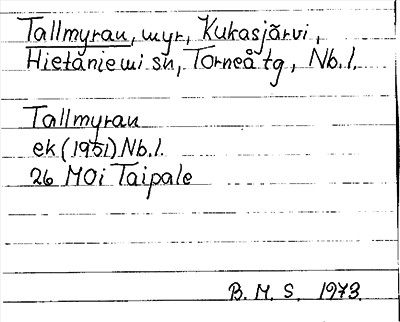 Tallmyran, myr, Kukasjärvi,
Hietaniemi sn, Torneå tg, Nb.l.
Tallmyran
ek (1951) Nb.l.
26 MOi Taipale
B. M. S. 1973.